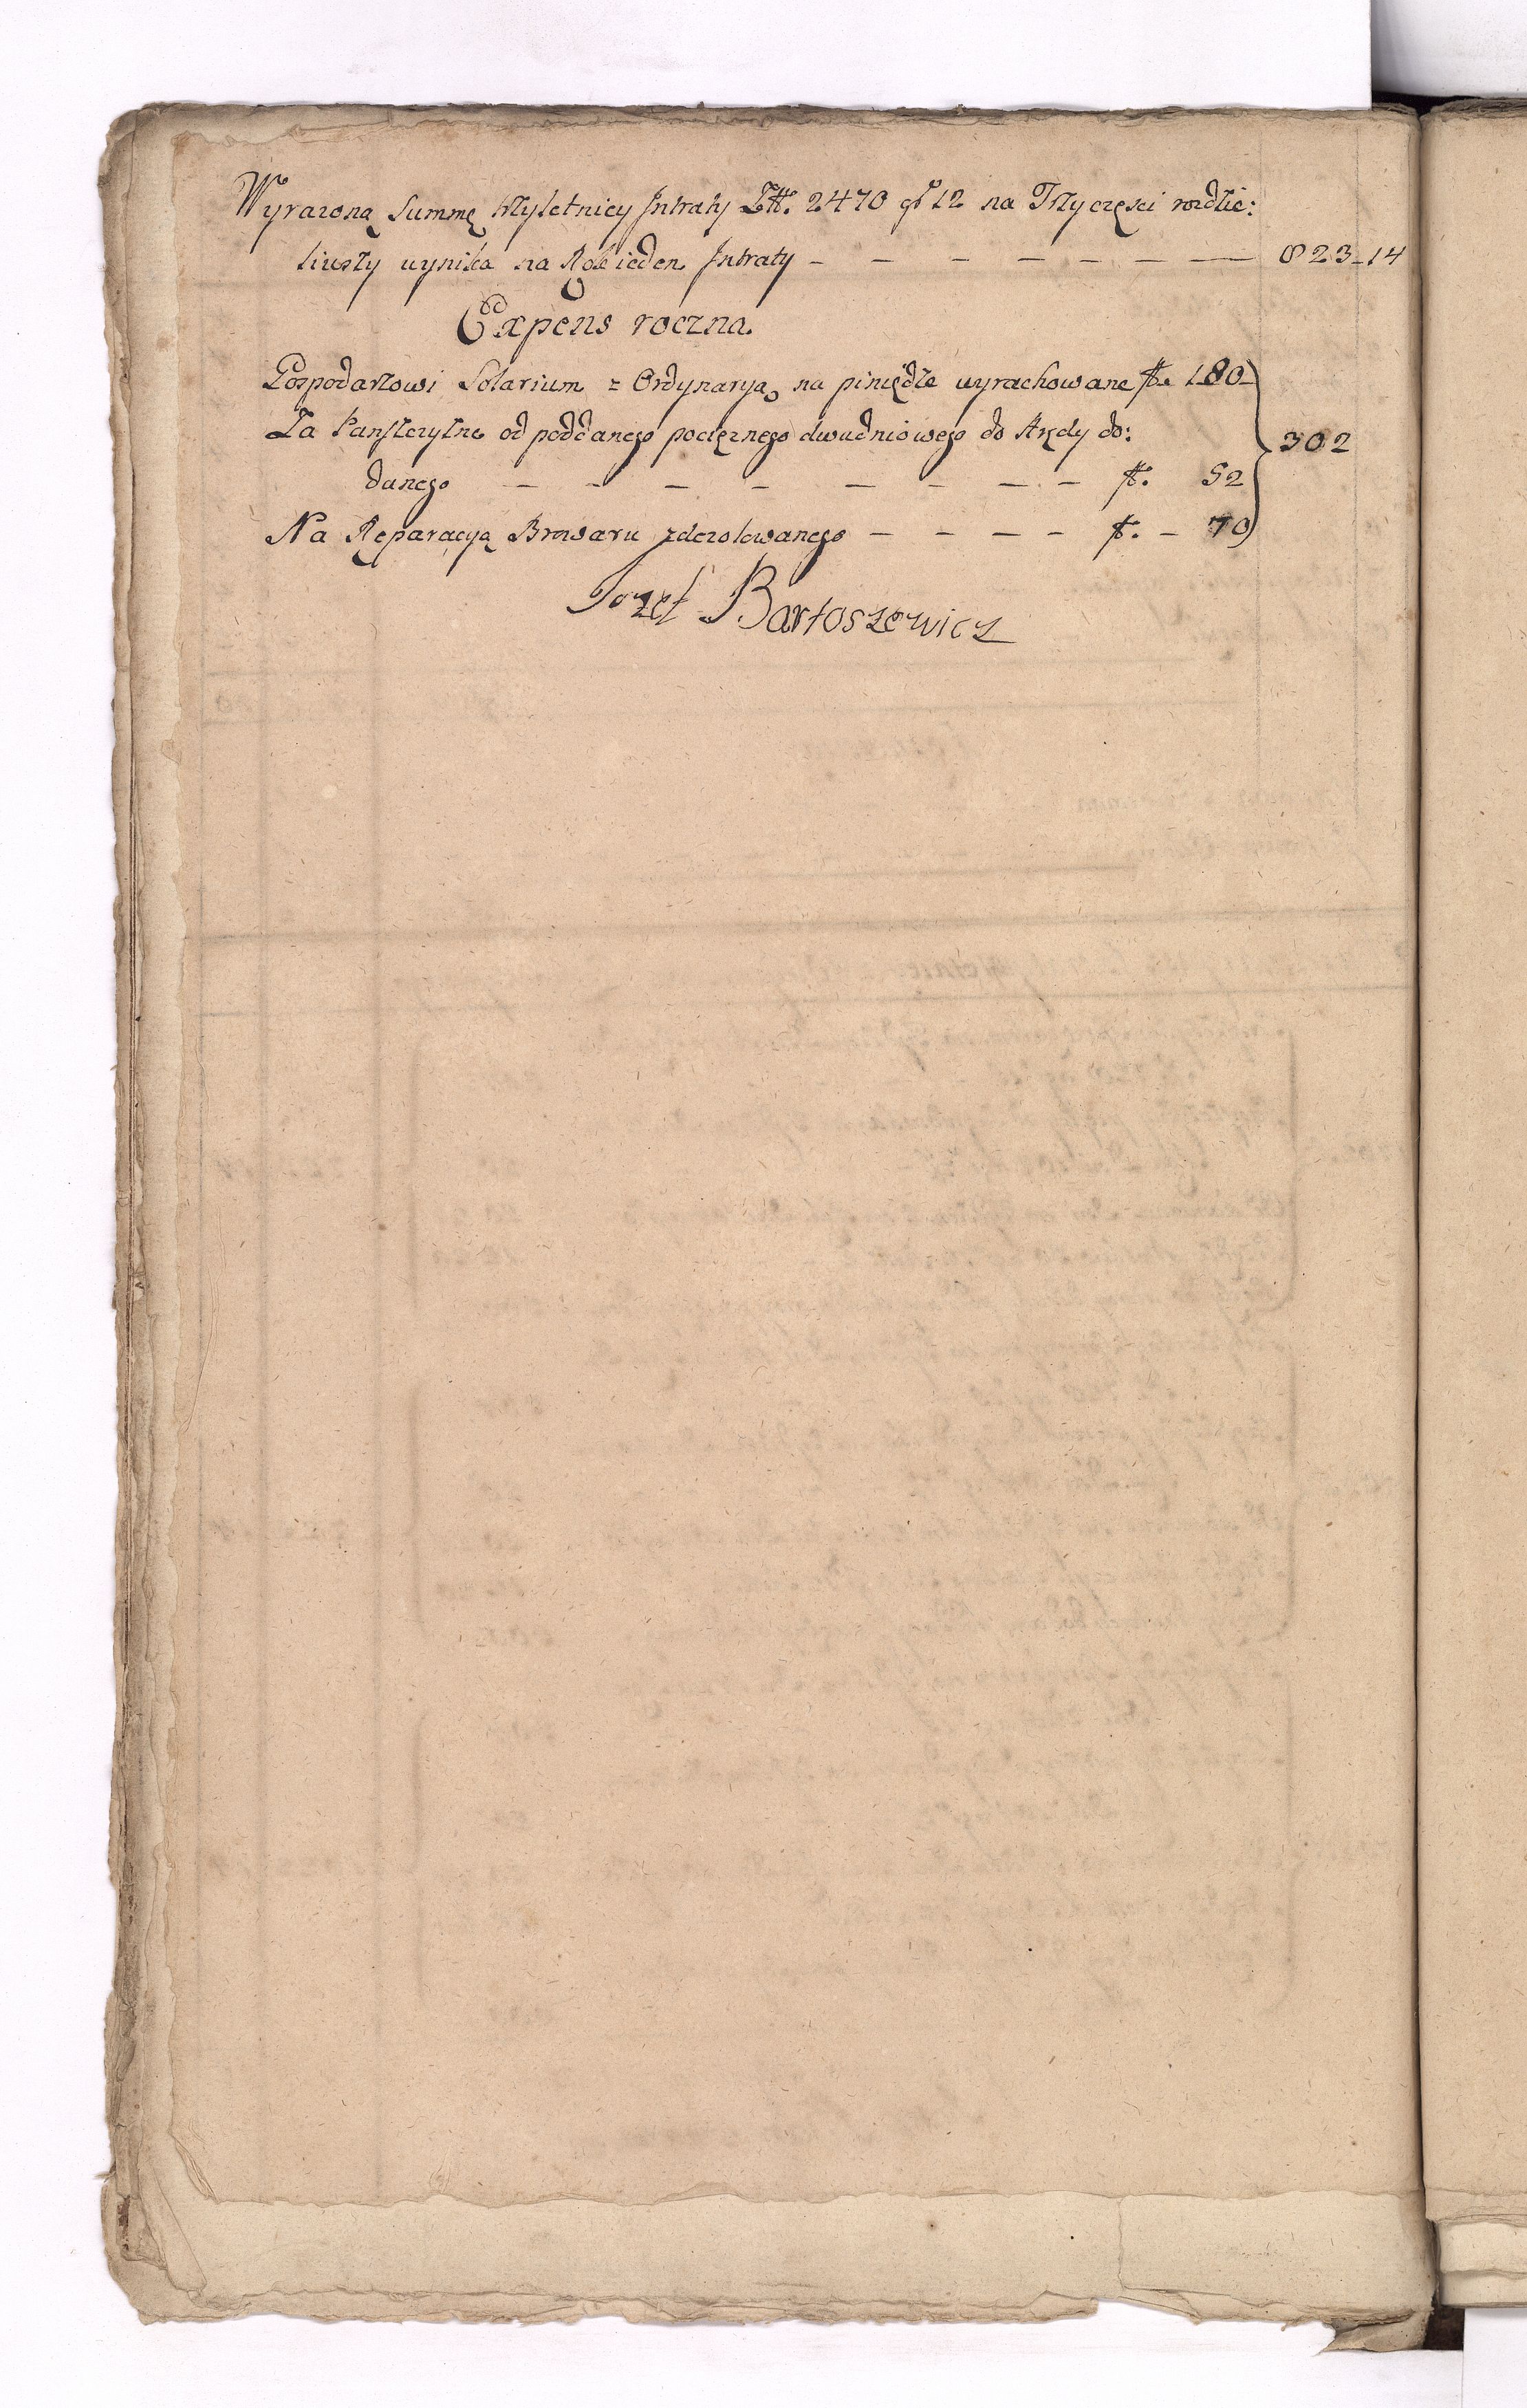 Wyrazoną Summę trzyletniey Jntraty Zł. 2470 gr 12 na Trzy częsci rozdzie:
liwszy wynika na Rok ieden Jntraty — — — — — — — 823_14
Expens roczna
Gospodarzowi Solarium z Ordynaryą na pieniędze wyrachowane fl. 180
Za Panszczyznę od poddanego pocięznego dwudniowego do Arędy do:
danego — — — — — — — — fl. 52
302
Na Reparacyą Browaru zdezolowanego — — — — fl. — 70
Jozef Bartoszewicz